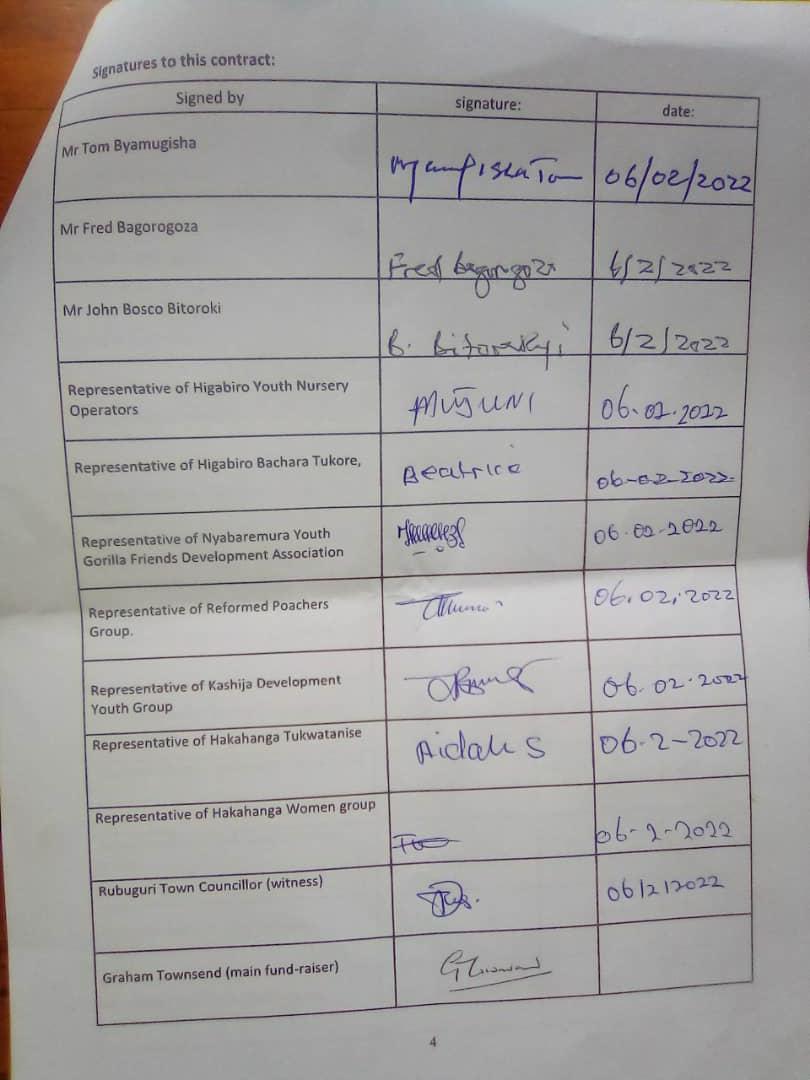 Signatures to this contract:
Signed by signature: date:
Mr Tom Byamugisha 06/02/2022
Mr Fred Bagorogoza Fred 6/2/2022
Mr John Bosco Bitoroki B. 6/2/2022
Representative of Higabiro Youth Nursery
Operators MUJUNI 06.02.2022
Representative of Higabiro Bachara Tukore, Beatrice 06-02-2022
Representative of Nyabaremura Youth
Gorilla Friends Development Association 06.02-2022
Representative of Reformed Poachers
Group. 06.02.2022
Representative of Kashija Development
Youth Group 06.02.2022
Representative of Hakahanga Tukwatanise Aidah S 06-2-2022
Representative of Hakahanga Women group 06-2-2022
Rubuguri Town Councillor (witness) 06/2/2022
Graham Townsend (main fund-raiser)
4